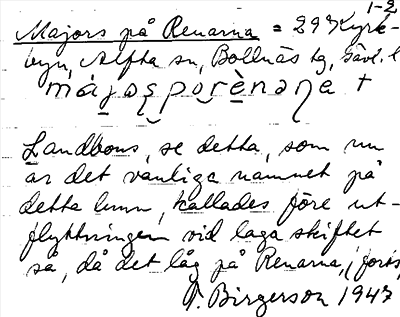 1-2
Majors på Renarna = 29 3 Kyrk-
byn, Alfta sn, Bollnäs tg, Gävl. l
májas̨porènaɳa +
Landbons, se detta, som nu
är det vanliga namnet på
detta hmn, kallades före ut-
flyttningen vid laga skiftet
så, då det låg på Renarna, (forts,
T. Birgerson 1947